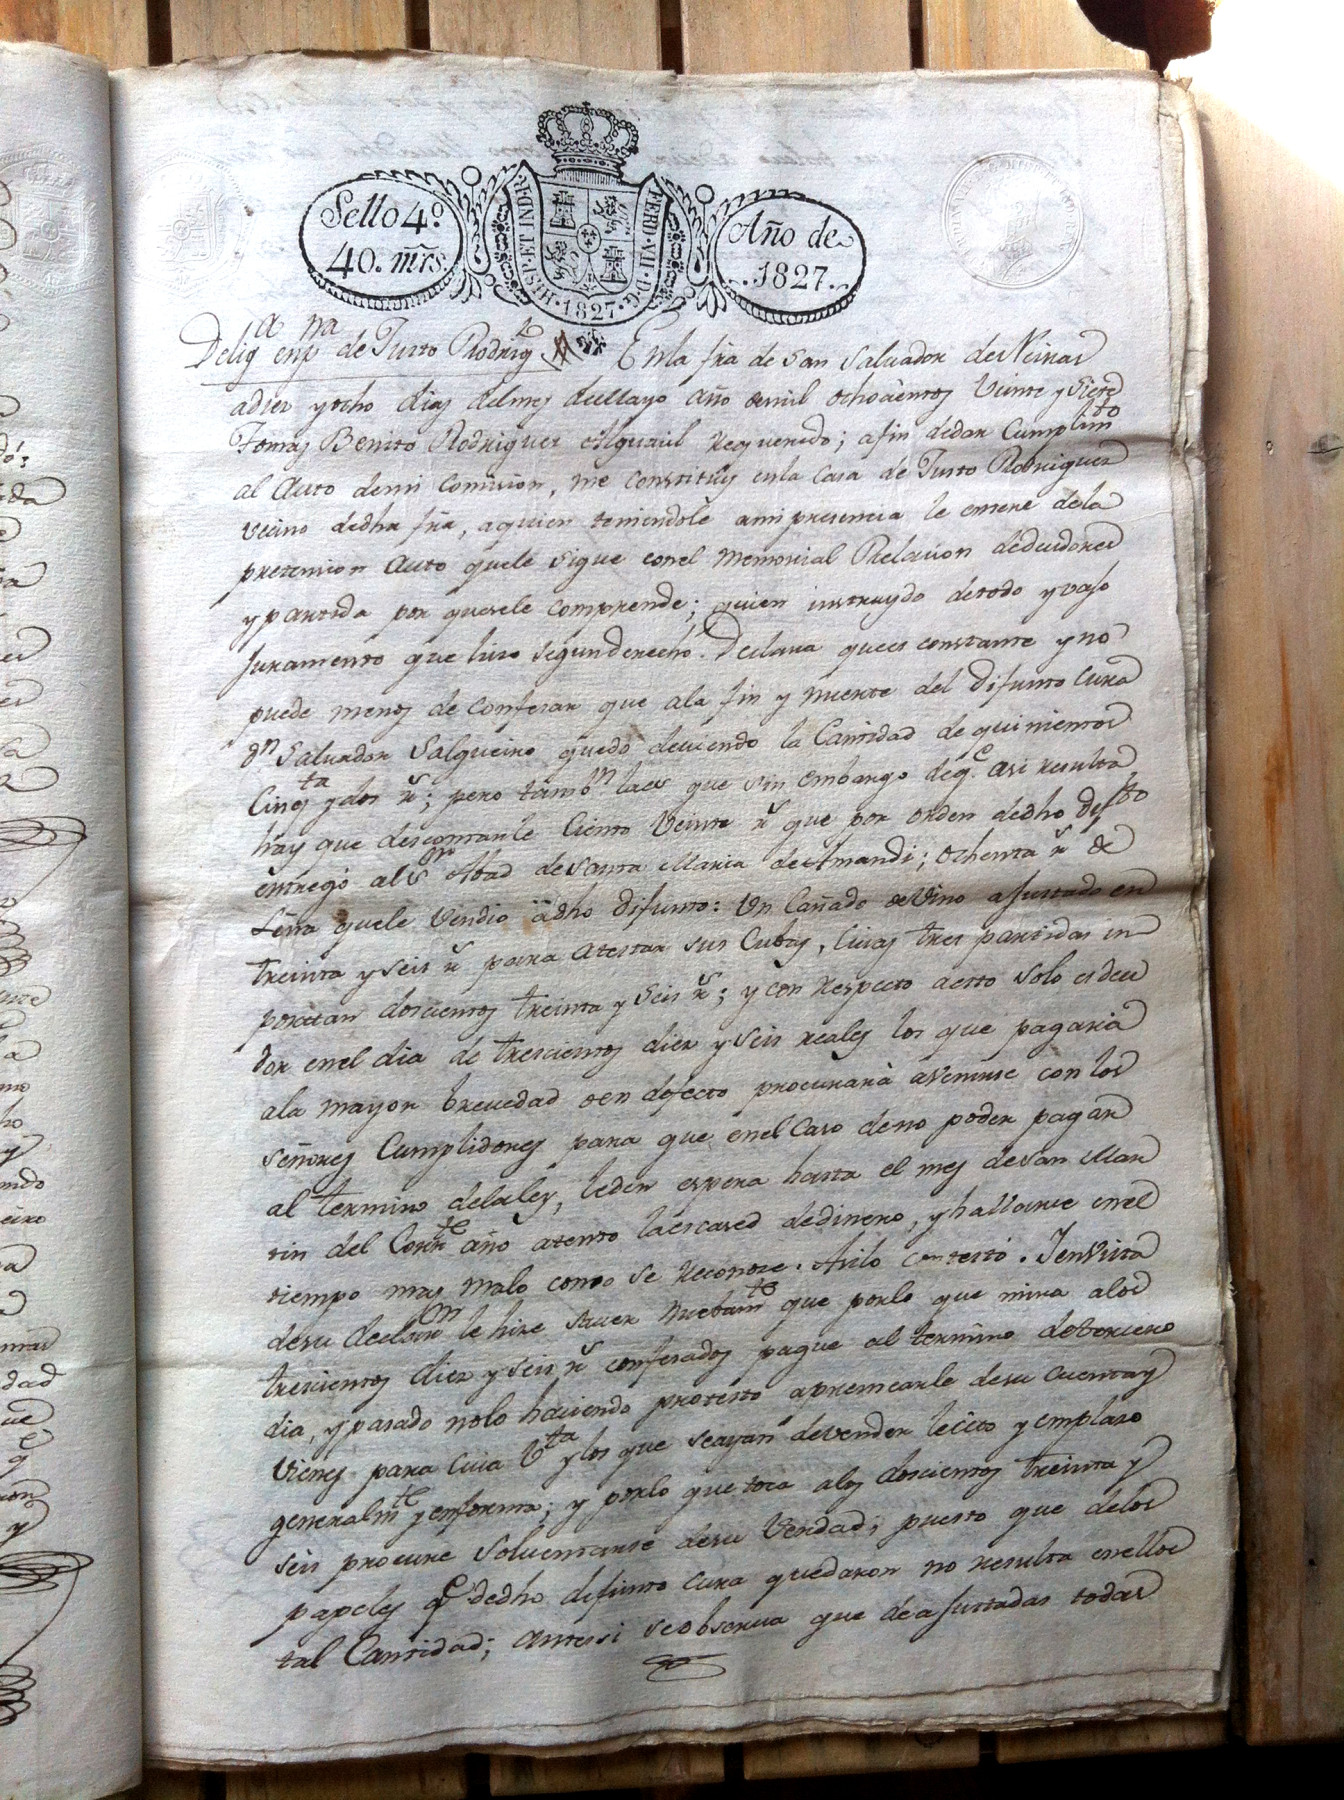 Sello 4º
40. mrs.
HISP. ET IND. R.
FERD. VII. D. G.
1827
Año de
1827.
Delig.a en p.na de Justo Rodrig.z En la fra de San Salvador de Neiras
a diez y ocho dias del mes de Mayo año de mil ochocientos Veinte y Siete
Tomas Benito Rodriguez Alguacil requerido; a fin de dar Cumplim.to
al Auto de mi Comision, me Constituy en la Casa de Justo Rodriguez
Vecino de dha fra, a quien teniendole a mi presencia le enteré de la
pretension Auto que le Sigue con el Memorial Relacion de deudores
y partida por que se le Comprende; quien instruydo de todo y vajo
juramento que hizo segun derecho. Declara que es constante y no
puede menos de Confesar que a la fin y muerte del Difunto Cura
Dn Salvador Salgueiro quedo deviendo la Cantidad de quinientos
Cinq.ta y dos rs; pero tamb.n lo es que sin embargo de q.e asi resulta
hay que descontarle Ciento Veinte rs que por orden de dho dif.to
entregó al S.or Abad de Santa Maria de Amandi; ochenta rs de
Leña que le Vendio a dho difunto: Un Cañado de Vino ajustado en
treinta y seis rs para atestar sus Cubas, cuias tres partidas in
portan doscientos treinta y Seis rs; y con respecto a esto solo es deu
dor en el dia de trescientos diez y seis reales los que pagaria
a la mayor brevedad o en defecto procurará avenirse con los
Señores Cumplidores para que en el Caso de no poder pagar
al termino de la ley, le den espera hasta el mes de San Mar
tin del Corr.te año atento la escased de dinero, y hallarse en el
tiempo mas malo como se reconoze. Asi lo contestó. I en vista
de su declar.on le hize saver nuebam.te que por lo que mira a los
trescientos diez y seis rs confesados pague al termino de tercero
dia, y pasado no lo haciendo protesto apremearle de su cuenta y
Vienes para cuia V.ta y los que se ayan de vender le cito y emplazo
generalm.te y en forma; y por lo que toca a los doscientos treinta y
seis procure Solventarse de su Verdad; puesto que de los
papeles q.e de dho difunto cura quedaron no resulta en ellos
tal Cantidad; antes si se observa que de ajustadas todas